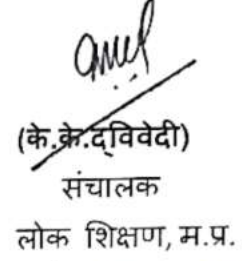 (के.के.द्विवेदी)
संचालक
लोक शिक्षण, म.प्र.